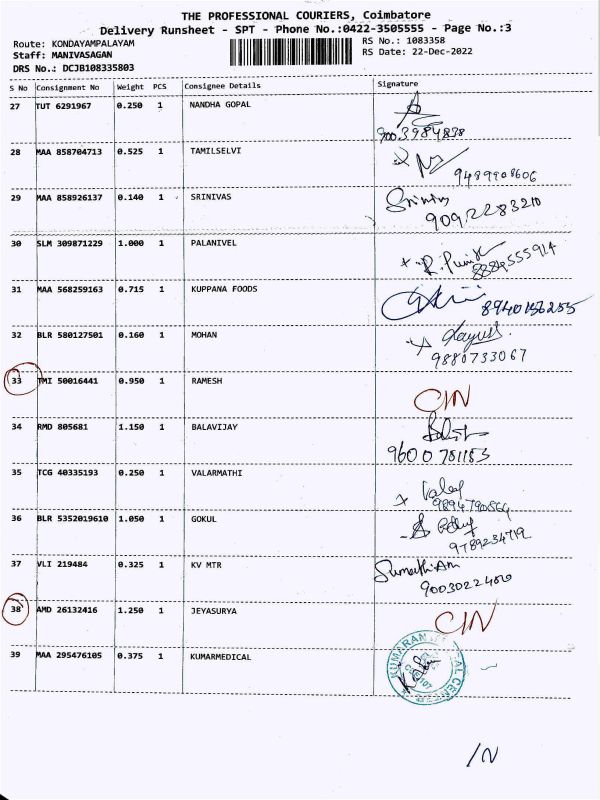 THE PROFESSIONAL COURIERS, Coimbatore
Delivery Runsheet - SPT - Phone No.:0422-3505555 - Page No.:3
Route: KONDAYAMPALAYAM RS No.: 1083358
Staff: MANIVASAGAN RS Date: 22-Dec-2022
DRS No.: DCJB108335803
S No Consignment No Weight PCS Consignee Details Signature
27 TUT 6291967 0.250 1 NANDHA GOPAL
9003984838
28 MAA 858704713 0.525 1 TAMILSELVI
9489908606
29 MAA 858926137 0.140 1 SRINIVAS Srinivas
9092283210
30 SLM 309871229 1.000 1 PALANIVEL
8884555914
31 MAA 568259163 0.715 1 KUPPANA FOODS
8940156255
32 BLR 580127501 0.160 1 MOHAN
9880733067
33 TMI 50016441 0.950 1 RAMESH CIN
34 RMD 805681 1.150 1 BALAVIJAY
9600781183
35 TCG 40335193 0.250 1 VALARMATHI
9894790864
36 BLR 5352019610 1.050 1 GOKUL
9789234719
37 VLI 219484 0.325 1 KV MTR
38 AMD 26132416 1.250 1 JEYASURYA CIN
39 MAA 295476105 0.375 1 KUMARMEDICAL KUMARAN
IN